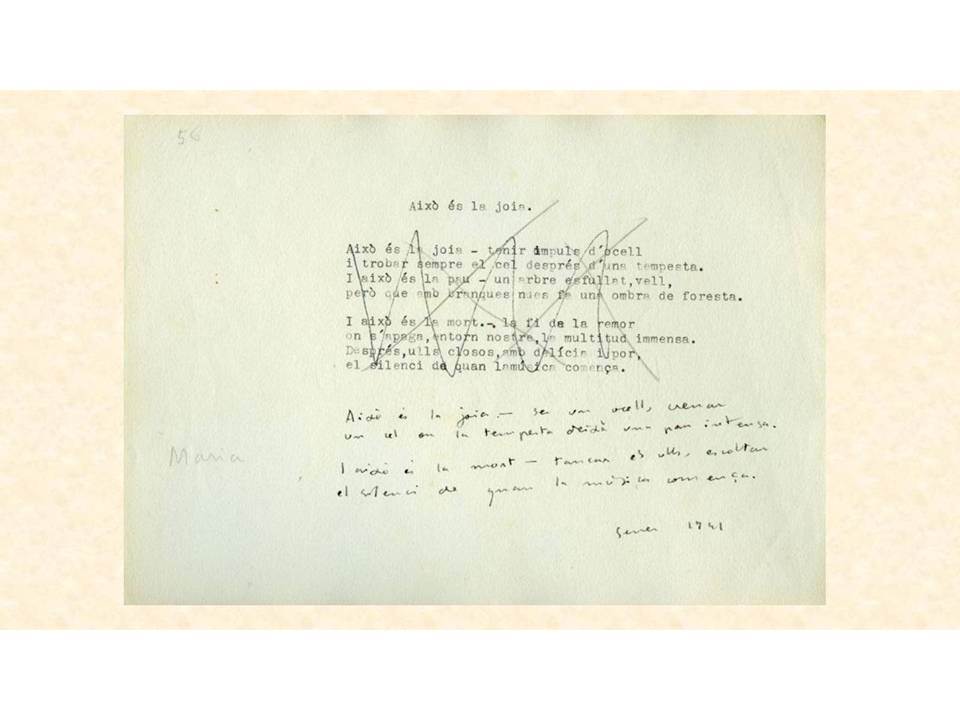 56
Això és la joia.
Això és la joia - tenir impuls d'ocell
i trobar sempre el cel després d'una tempesta.
I això és la pau - un arbre esfullat,vell,
però que amb branques nues fa una ombra de foresta.
I això és la mort.- la fi de la remor
on s'apaga,entorn nostre,la multitud immensa.
Després,ulls closos,amb delícia i por,
el silenci de quan lamúsica comença.
Això és la joia.- ser un ocell, creuar
un cel on la tempesta deixà una pau intensa.
I això és la mort - tancar els ulls, escoltar
el silenci de quan la música comença.
Maria
Gener 1941